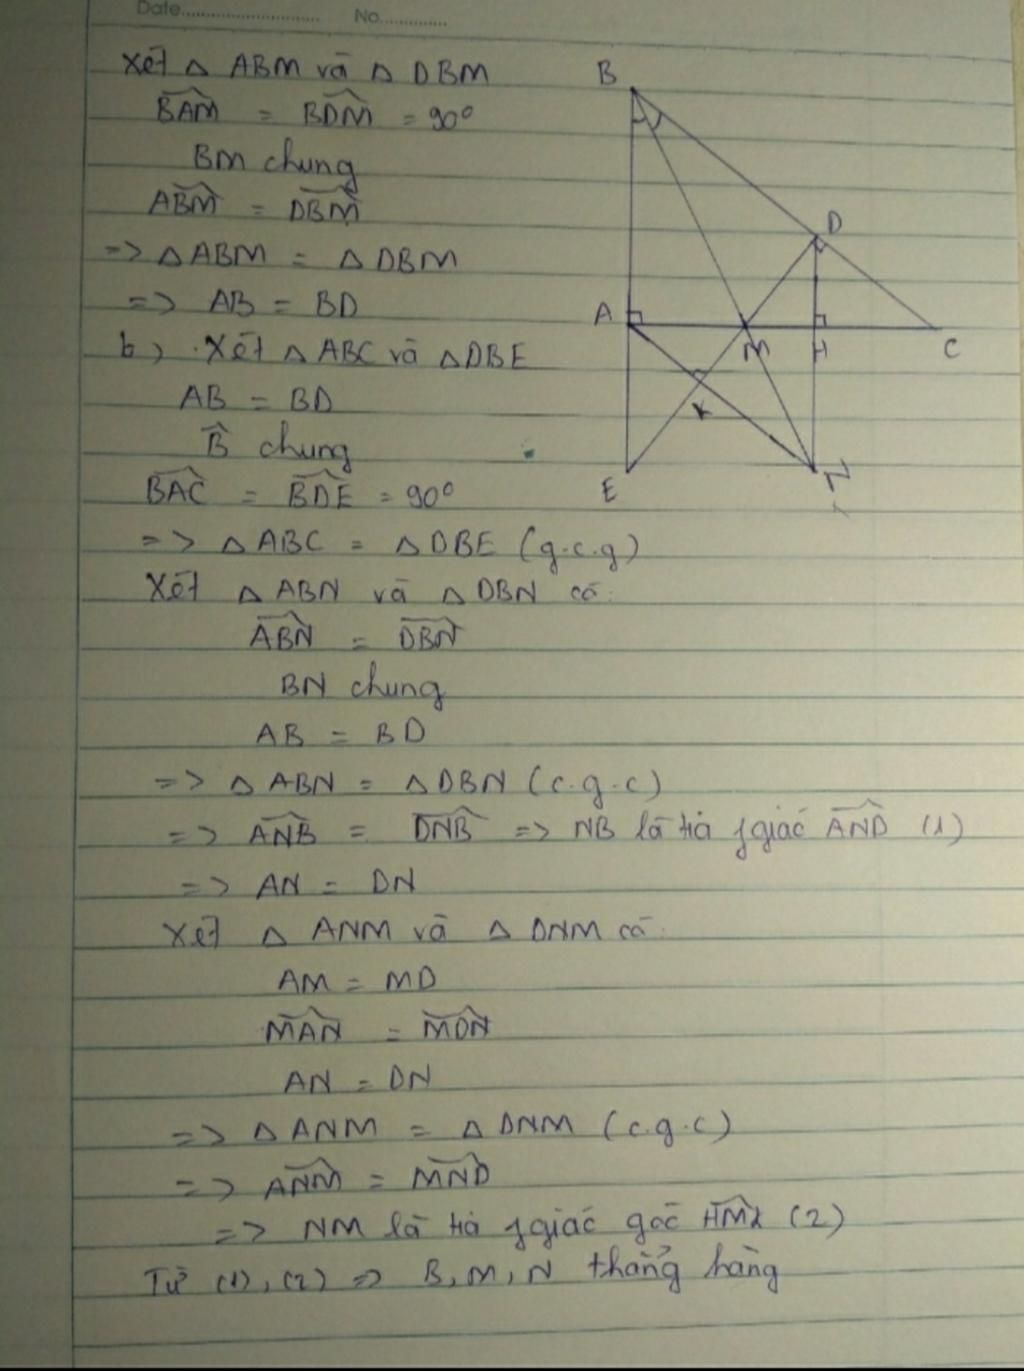 Date............................ No..............
Xét Δ ABM và Δ DBM
B̂AM = B̂DM = 90°
BM chung
ÂBM = D̂BM
=> Δ ABM = Δ DBM
=> AB = BD
b) . Xét Δ ABC và Δ DBE
AB = BD
B̂ chung
B̂AC = B̂DE = 90°
=> Δ ABC = Δ DBE (g.c.g)
Xét Δ ABN và Δ DBN có:
ÂBN = D̂BN
BN chung
AB = BD
=> Δ ABN = Δ DBN (c.g.c)
=> ÂNB = D̂NB => NB là tia giác ÂND (1)
=> AN = DN
Xét Δ ANM và Δ DNM có:
AM = MD
M̂AN = M̂DN
AN = DN
=> Δ ANM = Δ DNM (c.g.c)
=> ÂNM = M̂ND
=> NM là tia giác góc (2)
Từ (1), (2) => B, M, N thẳng hàng
B
D
A
M
H
C
K
E
N